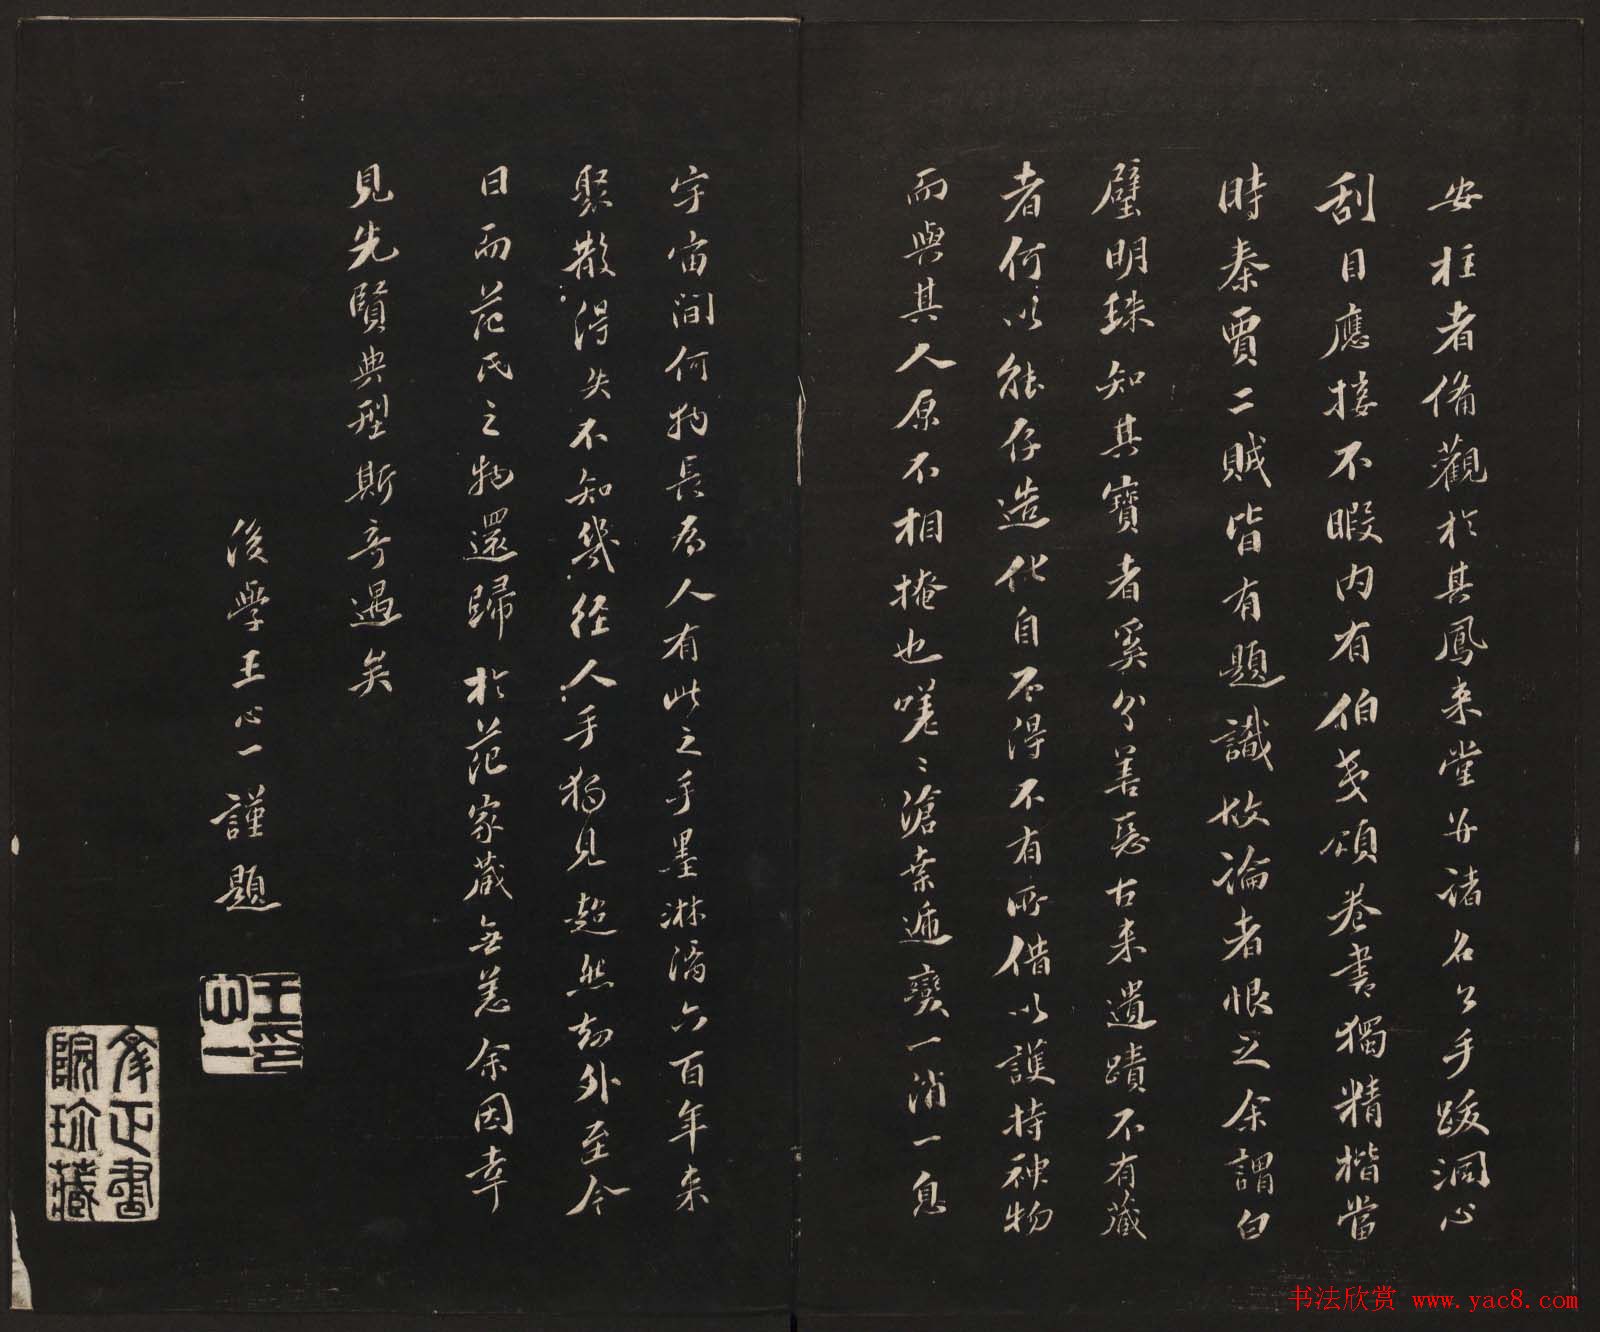 安柱者備觀於其鳳來堂并諸名公手跋洞心
刮目應接不暇內有伯夷頌卷書獨精楷當
時秦賈二賊皆有題識故論者恨之余謂白
璧明珠知其寶者奚分善惡古来遺蹟不有藏
者何以能存造化自不得不有所借以護持神物
而與其人原不相掩也嗟〻滄桑遞變一消一息
宇宙間何物長存人有此之手墨淋漓六百年来
聚散得失不知幾經人手獨見超然劫外至今
日而范氏之物還歸於范家藏無恙余因幸
見先賢典型斯奇遇矣
後學王心一謹題
王印心一
文正書院珍藏
书法欣赏 www.yac8.com